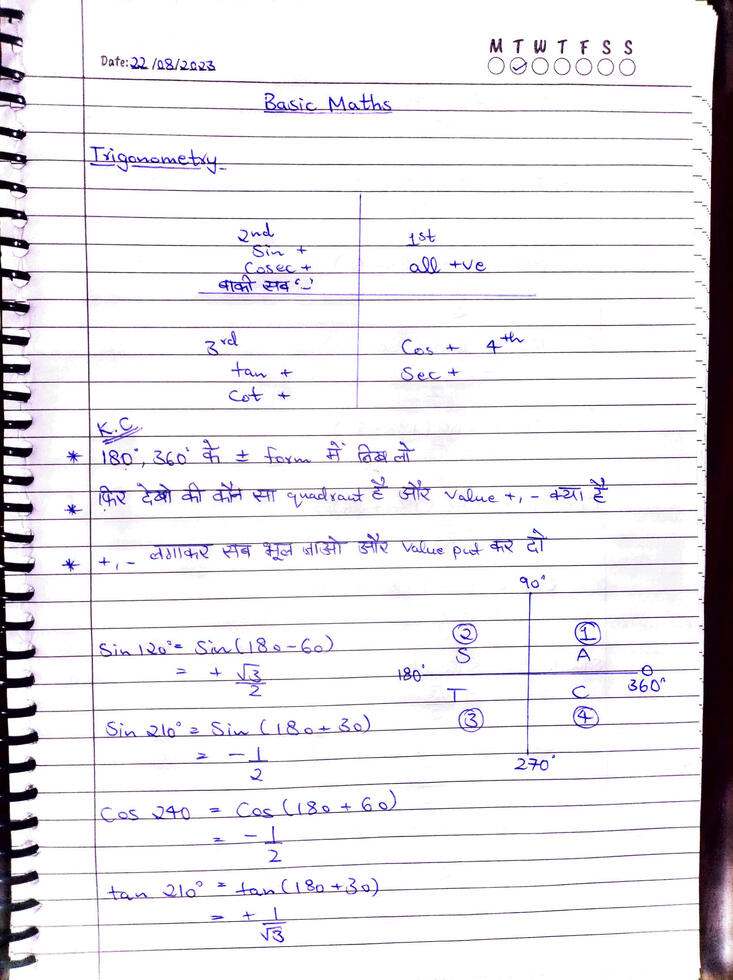 M T W T F S S
Date: 22/08/2023
Basic Maths
Trigonometry
2nd
Sin +
Cosec +
बाकी सब '-'
1st
all +ve
3rd
tan +
Cot +
Cos + 4th
Sec +
K.C.
* 180°, 360° के ± form में लिख लो
* फिर देखो की कौन सा quadrant है और value +, - क्या है
* +, - लगाकर सब भूल जाओ और value put कर दो
90°
② ①
S A
180° 0
360°
T C
③ ④
270°
Sin 120° = Sin (180-60)
= + √3/2
Sin 210° = Sin (180+30)
= - 1/2
Cos 240 = Cos (180+60)
= - 1/2
tan 210° = tan (180+30)
= + 1/√3